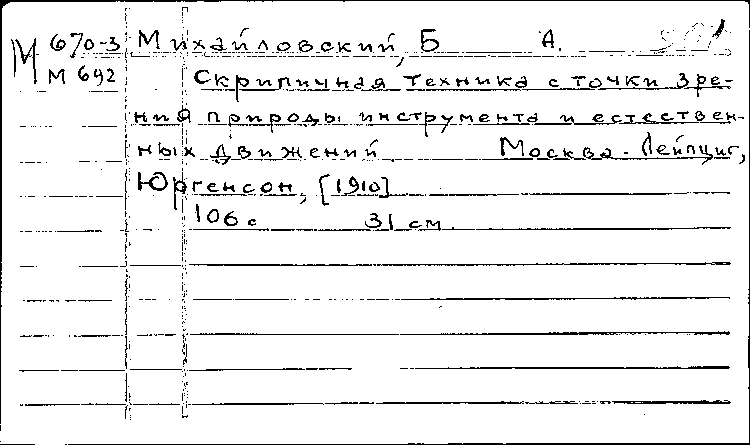 М 670-3 Михайловский, Б А.
М 692 Скрипичная техника с точки зре-
ния природы инструмента и естествен-
ных движений. Москва - Лейпциг,
Юргенсон, [1910]
106 с 31 см.